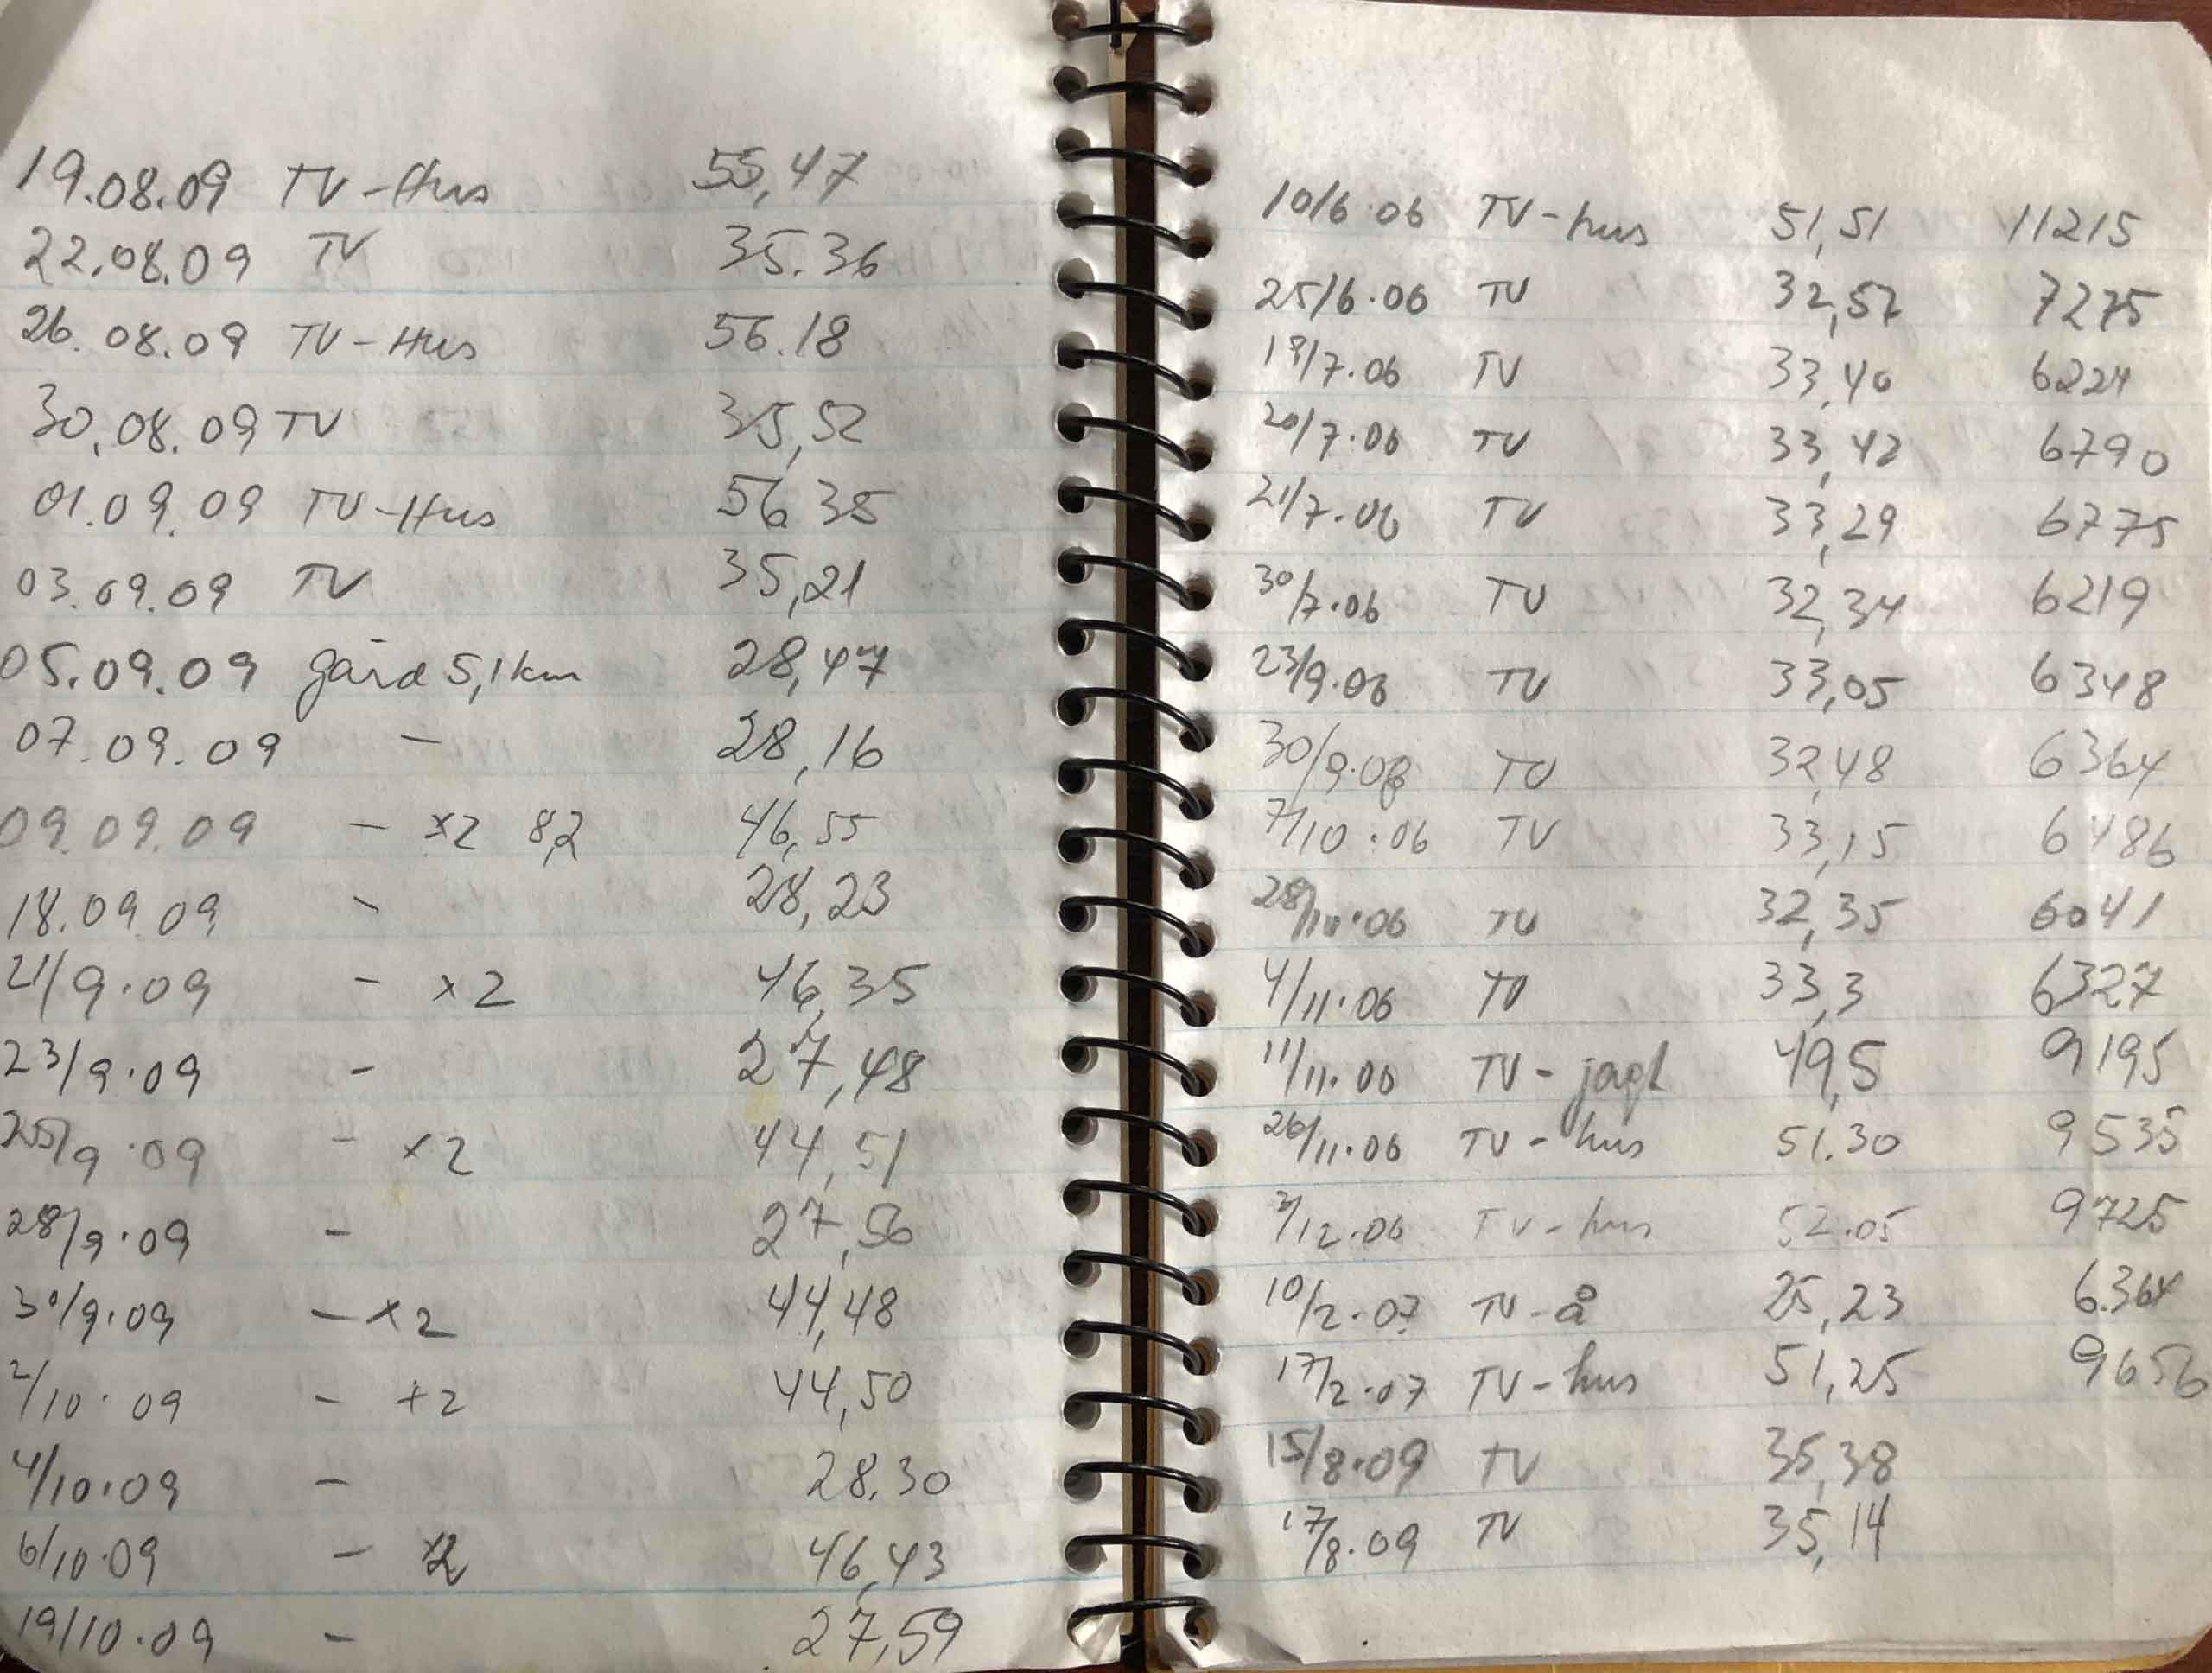 19.08.09 TV-Hus 55,47
22.08.09 TV 35.36
26.08.09 TV-Hus 56.18
30.08.09 TV 35,52
01.09.09 TV-Hus 56 35
03.09.09 TV 35,21
05.09.09 gård 5,1 km 28,47
07.09.09 - 28,16
09.09.09 - x2 8,2 46,55
18.09.09 - 28,23
21/9.09 - x2 46,35
23/9.09 - 27,48
25/9.09 - x2 44,51
28/9.09 - 27,56
30/9.09 - x2 44,48
2/10.09 - x2 44,50
4/10.09 - 28.30
6/10.09 - x2 46,43
19/10.09 - 27,59
10/6.06 TV-hus 51,51 11215
25/6.06 TV 32,52 7275
19/7.06 TV 33,40 6224
20/7.06 TV 33,42 6790
21/7.06 TV 33,29 6775
30/7.06 TV 32,34 6219
23/9.06 TV 33,05 6348
30/9.06 TV 32,48 6364
7/10.06 TV 33,15 6486
28/10.06 TV 32,35 6041
4/11.06 TV 33,3 6327
11/11.06 TV-jagt 49,5 9195
26/11.06 TV-hus 51.30 9535
/12.06 TV-hus 52.05 9725
10/2.07 TV-å 25,23 6.364
17/2.07 TV-hus 51,25 9656
15/8.09 TV 35,38
17/8.09 TV 35,14